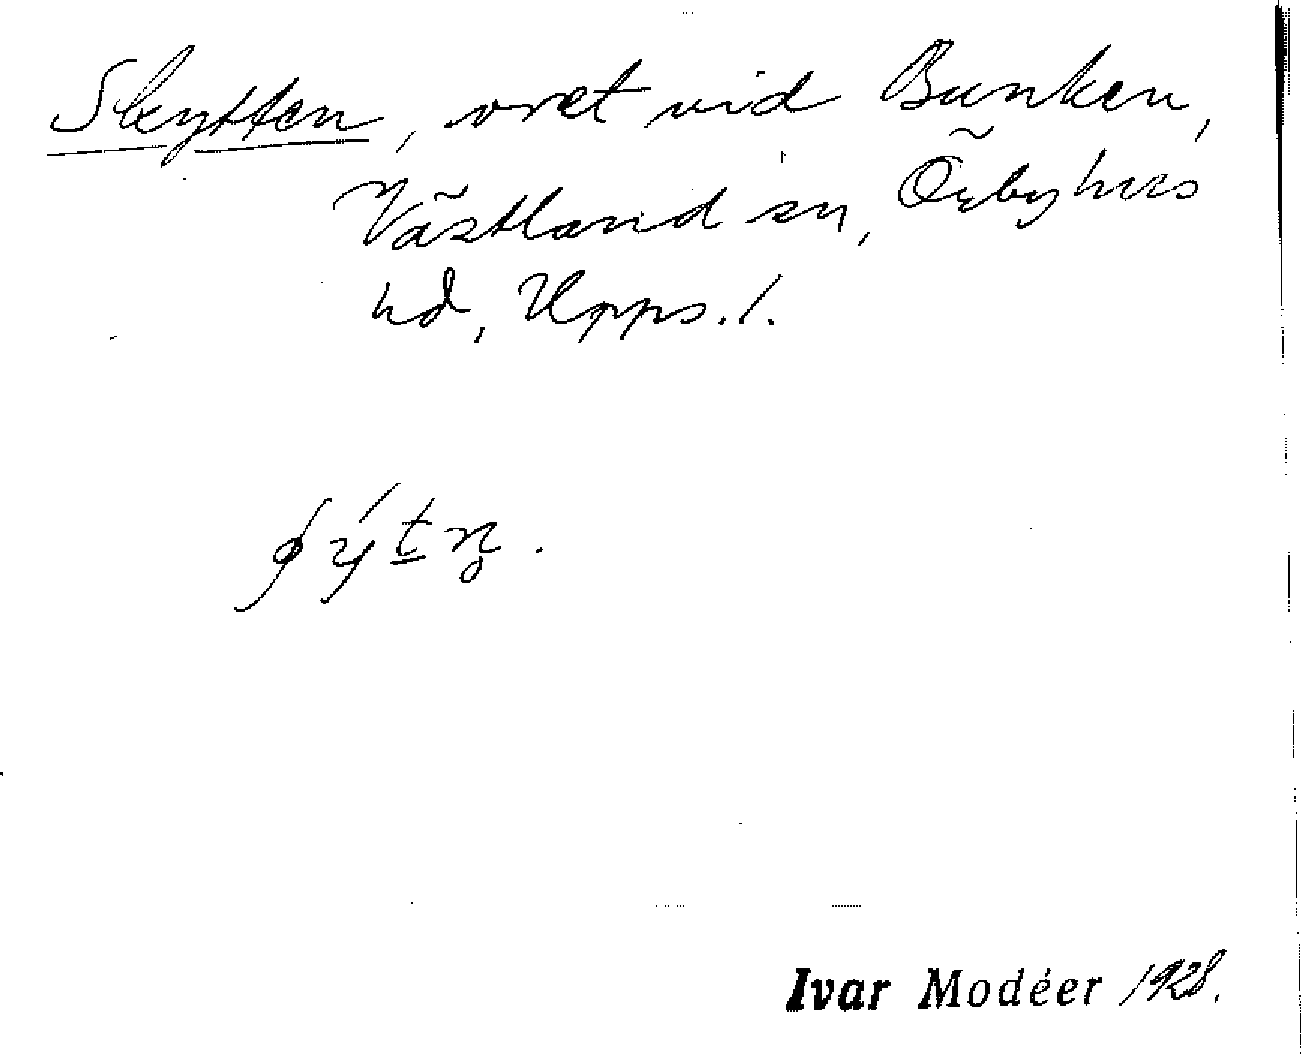 Skytten, vret vid Bunken,
Västland sn, Örbyhus
hd, Upps. l.
Ivar Modéer 1928.